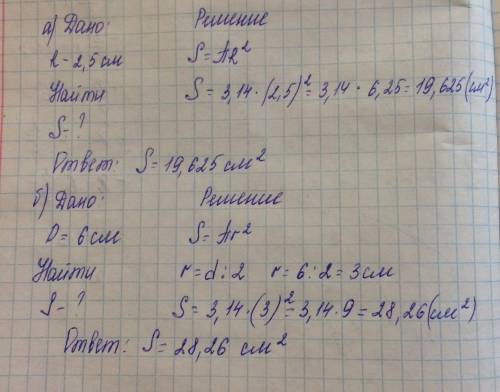 а) Дано: Решение
r - 2,5 см S = πR²
Найти S = 3,14 · (2,5)² = 3,14 · 6,25 = 19,625 (см²)
S - ?
Ответ: S = 19,625 см²
б) Дано: Решение
D = 6 см S = πr²
Найти r = d : 2 r = 6 : 2 = 3 см
S - ? S = 3,14 · (3)² = 3,14 · 9 = 28,26 (см²)
Ответ: S = 28,26 см²